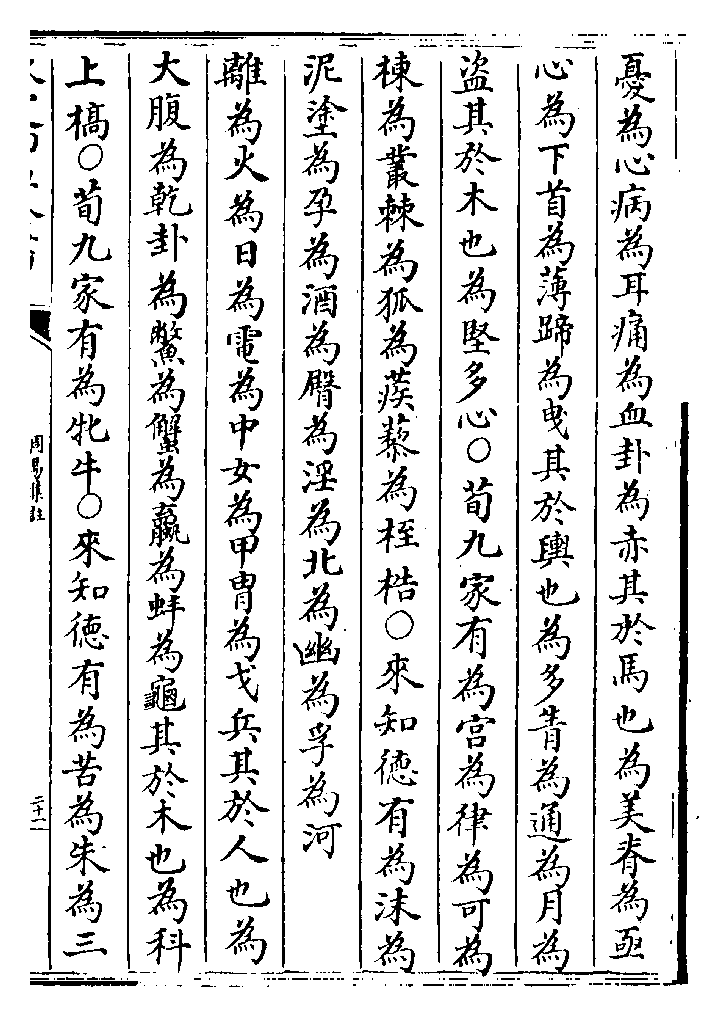 憂為心病為耳痛為血卦為赤其於馬也為美脊為亟
心為下首為薄蹄為曳其於輿也為多眚為通為月為
盜其於木也為堅多心○荀九家有為宮為律為可為
棟為叢棘為狐為蒺藜為桎梏○來知德有為沬為
泥塗為孕為酒為臀為淫為北為幽為孚為河
離為火為日為電為中女為甲冑為戈兵其於人也為
大腹為乾卦為鱉為蟹為蠃為蚌為龜其於木也為科
上槁○荀九家有為牝牛○來知德有為苦為朱為三
周易集註
二十二